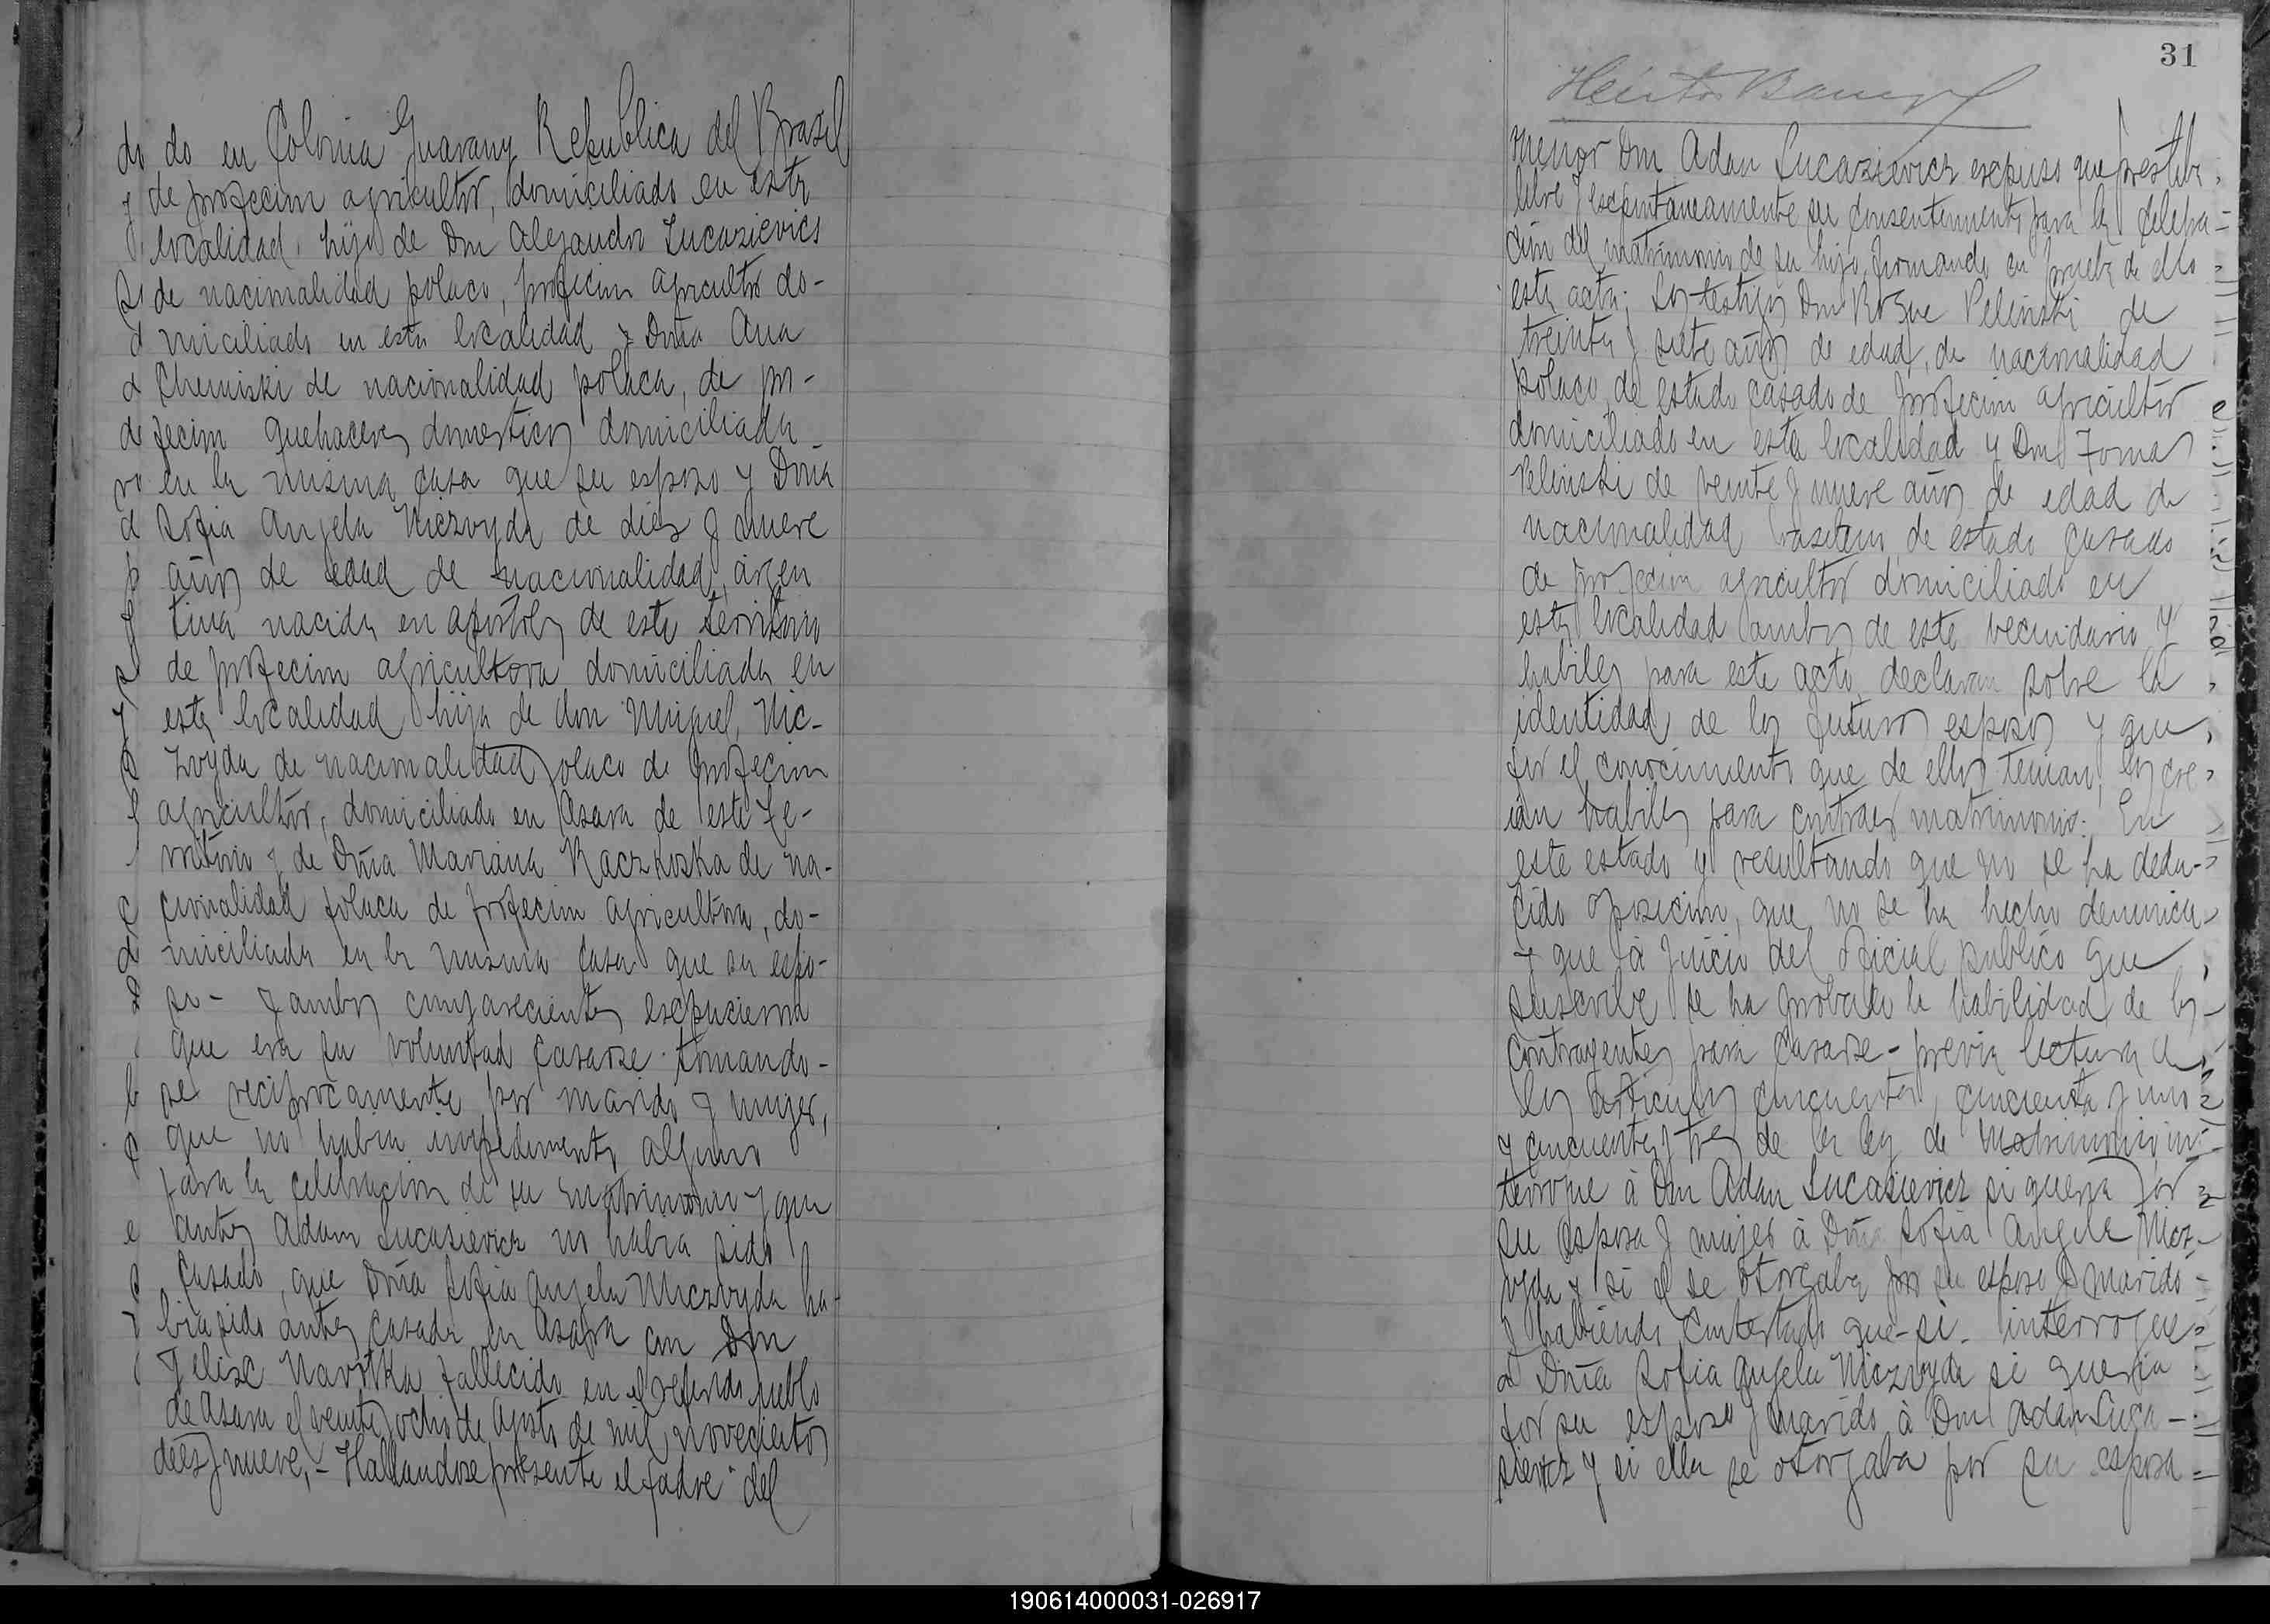 do en Colonia Guarany Republica del Brasil
de profecion agricultor, domiciliado en esta
localidad, hijo de Don Alejandro Lucasievics
de nacionalidad polaco, profecion agricultor do-
miciliado en esta localidad y Doña Ana
Cheminski de nacionalidad polaca, de pro-
fecion quehaceres domesticos domiciliada
en la misma casa que su esposo y Doña
Sofia Angela Niezvyda de diez y nueve
años de edad de nacionalidad argen
tina nacida en apostoles de este territorio
de profecion agricultora domiciliada en
esta localidad hija de don Miguel Nie-
zvyda de nacionalidad polaco de profecion
agricultor, domiciliado en Asara de este te-
rritorio y de Doña Mariana Raczkoska de na-
cionalidad polaca de profecion agricultora, do-
miciliada en la misma casa que su espo-
so - y ambos comparecientes expucieron
que era su voluntad casarse tomando-
se reciprocamente por marido y mujer,
que no habia impedimento alguno
para la celebracion de su matrimonio y que
antes Adam Lucasievicz no habia sido
casado, que Doña Sofia Angela Niezvyda ha-
bia sido antes casada en Asara con Don
Felise Navotka fallecido en el referido pueblo
de Asara el veinte y ocho de Agosto de mil novecientos
diez y nueve, - Hallandose presente el padre del
31
menor Don Adan Lucazievicz expuso que prestaba
libre y espontaneamente su consentimiento para la celebra-
cion del matrimonio de su hijo, firmando en prueba de ello
esta acta; Los testigos Don Roque Pelinski de
treinta y siete años de edad, de nacionalidad
polaco, de estado casado de profecion agricultor
domiciliado en esta localidad y Don Tomas
Pelinski de veinte y nueve años de edad de
nacionalidad brasilero de estado casado
de profecion agricultor domiciliado en
esta localidad ambos de este vecindario y
habiles para este acto, declaran sobre la
identidad de los futuros esposos y que
por el conocimiento que de ellos tenian, los cre-
ian habiles para contraer matrimonio: En
este estado y resultando que no se ha dedu-
cido oposicion, que no se ha hecho denuncia
y que à juicio del oficial publico que
suscribe se ha probado la habilidad de los
contrayentes para casarse - previa lectura de
los articulos cincuenta, cincuenta y uno
y cincuenta y tres de la ley de matrimonio in-
terrogue à Don Adan Lucasievicz si queria por
su esposa y mujer à Doña Sofia Angela Niez-
vyda y si el se otorgaba por su esposo y marido
y habiendo contestado que - si - interrogue
à Doña Sofia Angela Niezvyda si queria
por su esposo y marido à Don Adan Luca-
sievicz y si ella se otorgaba por su esposa
190614000031-026917